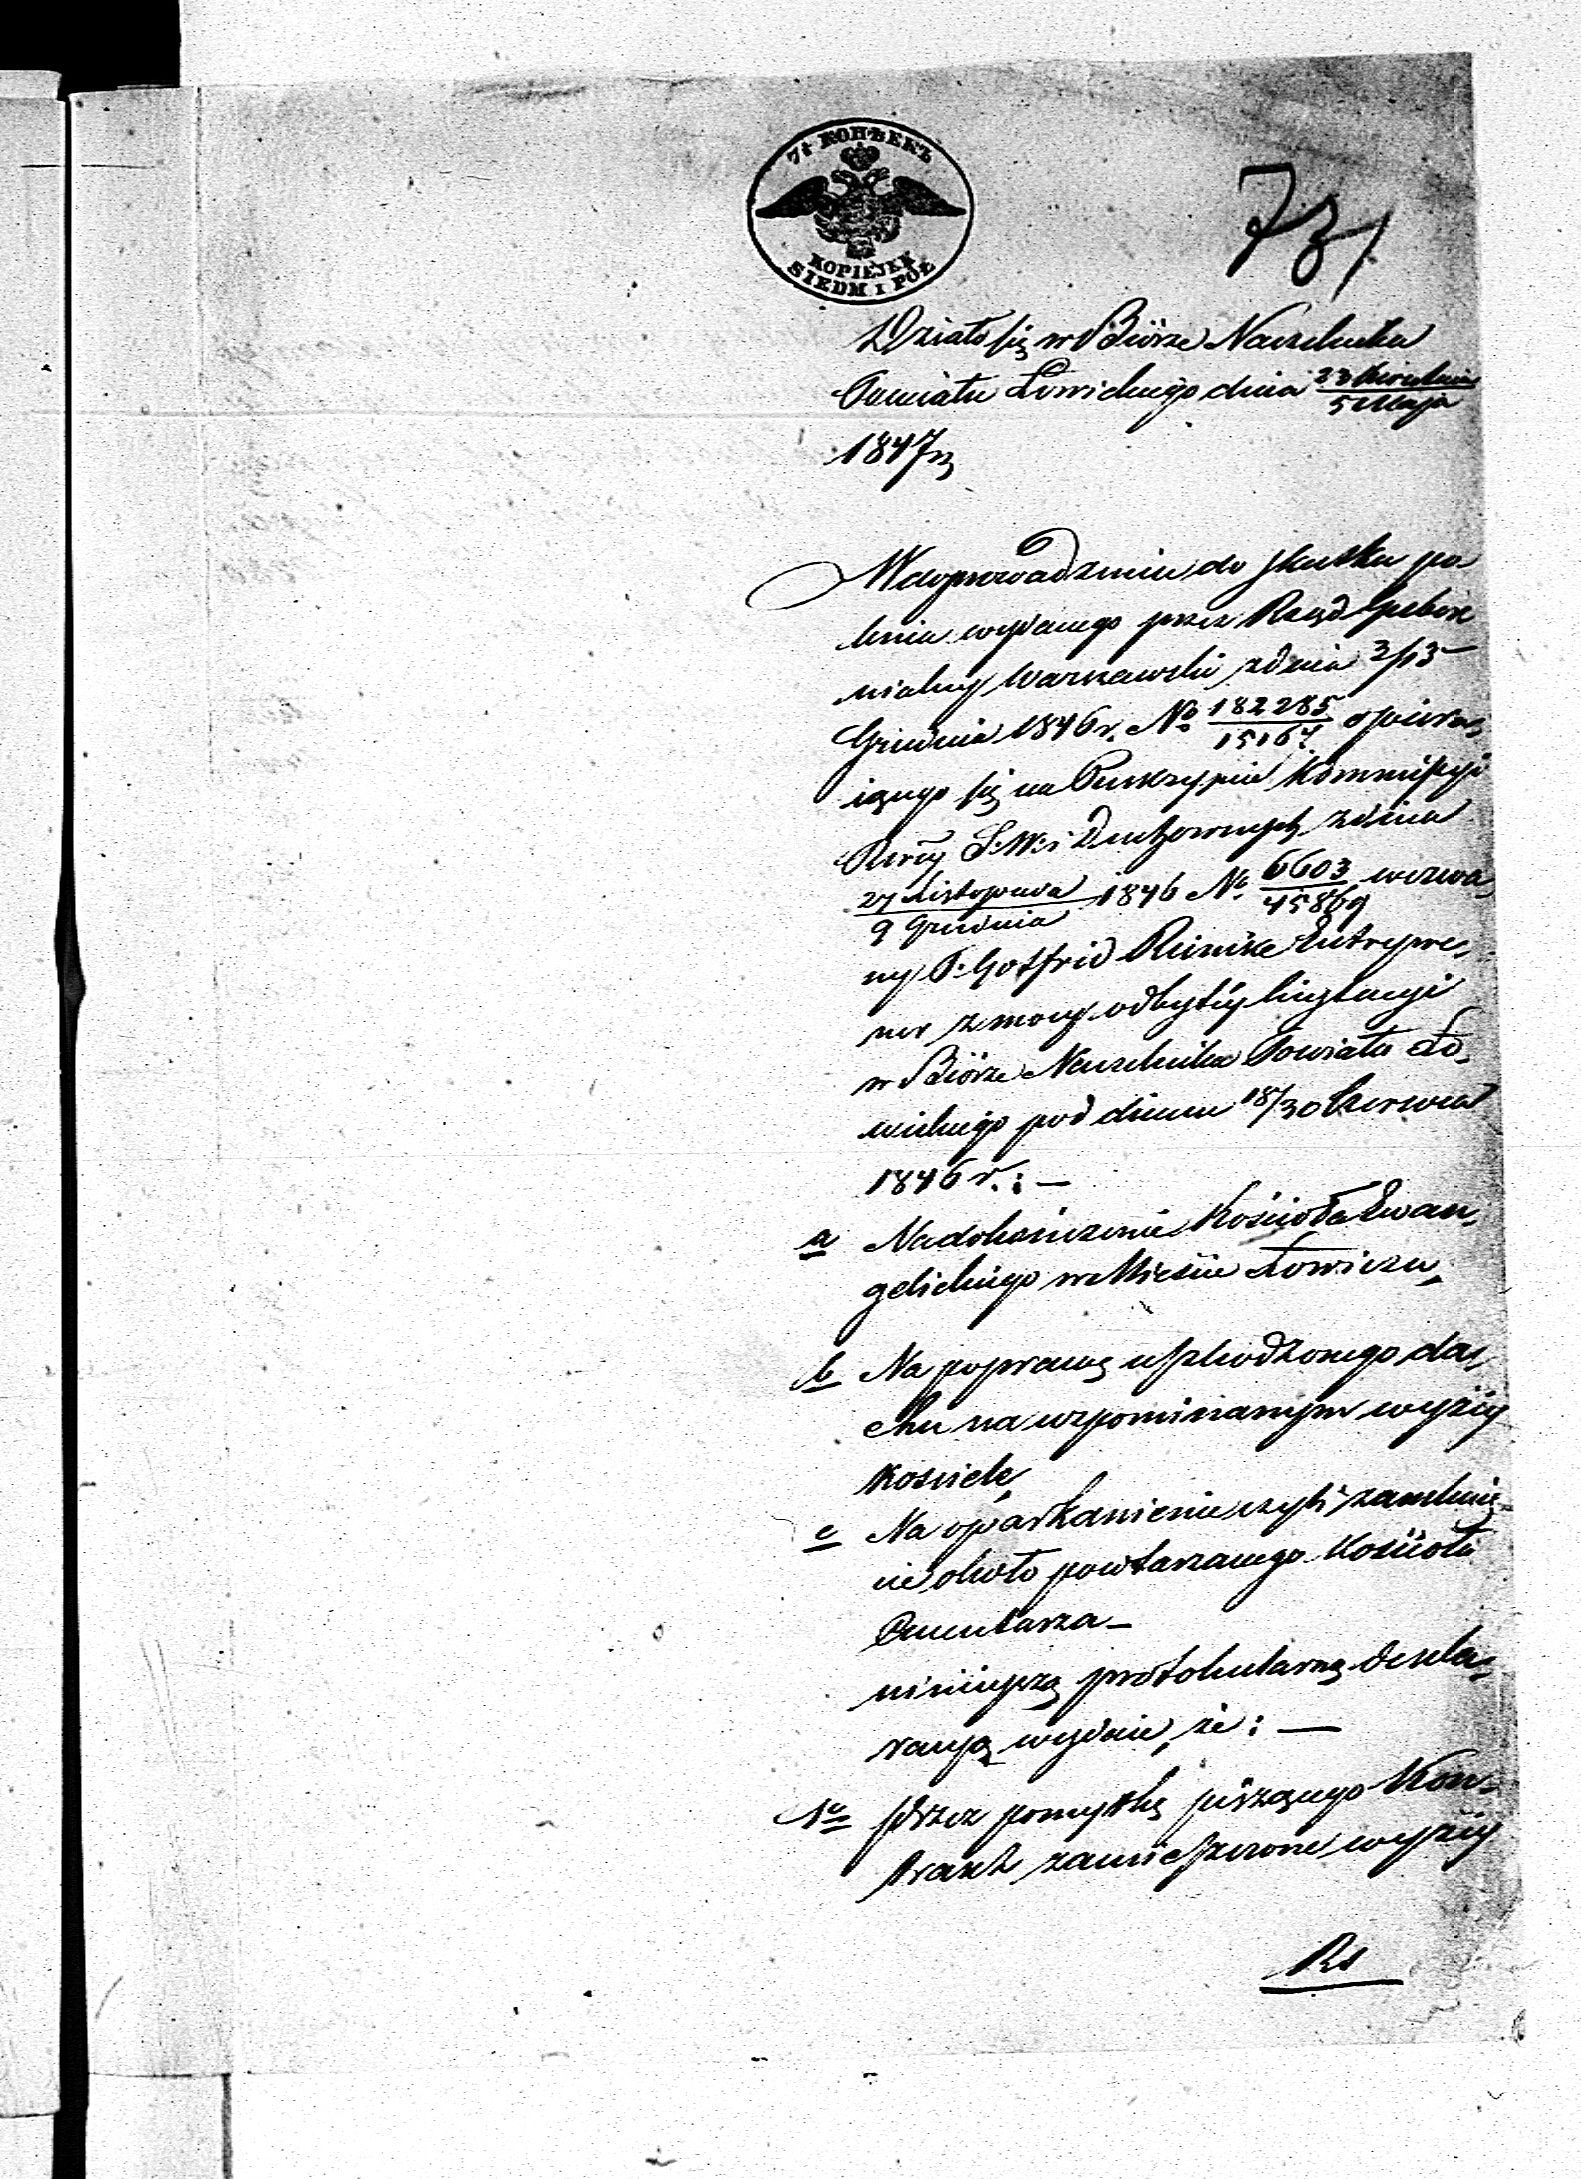 7½ КОПѢЕКЪ
KOPIEJEK
SIEDM I PÓŁ
73/
Działo się w Biórze Naczelnika
Powiatu Łowickiego dnia 23 Kwietnia / 5 Maja
1847 r.
W doprowadzeniu do skutku po
lenia wydanego przez Rząd Guber
nialny Warszawski z dnia 3/15
Grudnia 1846 r. No 182285 / 15167 opiera,
iącego się na Reskrypcie Kommissyi
Rząy S: W: i Duchownych z dnia
27 Listopada / 9 Grudnia 1846 No. 6603 / 45869 wezwa,
ny P. Gotfrid Reinike Entrepre,
ner z mocy odbytéy licytacyi
w Biórze Naczelnika Powiatu Ło,
wickiego pod dniem 18/30 Czerwca
1846 r.: —
a Na dokończenie Kościoła Ewan,
gelickiego w Mieście Łowiczu,
b Na poprawę uszkodzonego da,
chu na wspominanym wyżéy
Kościele,
c Na oparkanienie czyli zamknię,
cie około powtarzanego Kościoła
Cmentarza —
niniejszą protokularną dekla,
racyą wydaie, że: —
1o przez pomyłkę piszącego Kon,
trakt zamieszczone wyżéy
Rs